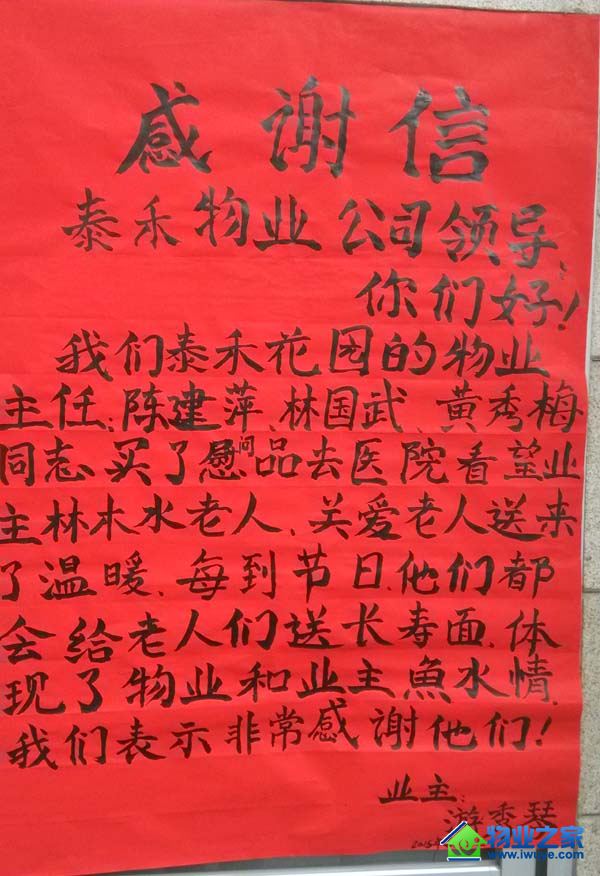 感谢信
泰禾物业公司领导:
你们好!
我们泰禾花园的物业
主任:陈建萍、林国武、黄秀梅
同志买了慰问品去医院看望业
主林木水老人、关爱老人送来
了温暖、每到节日他们都
会给老人们送长寿面、体
现了物业和业主魚水情、
我们表示非常感谢他们!
业主:
游秀琴
2015
物业之家
www.iwuye.com